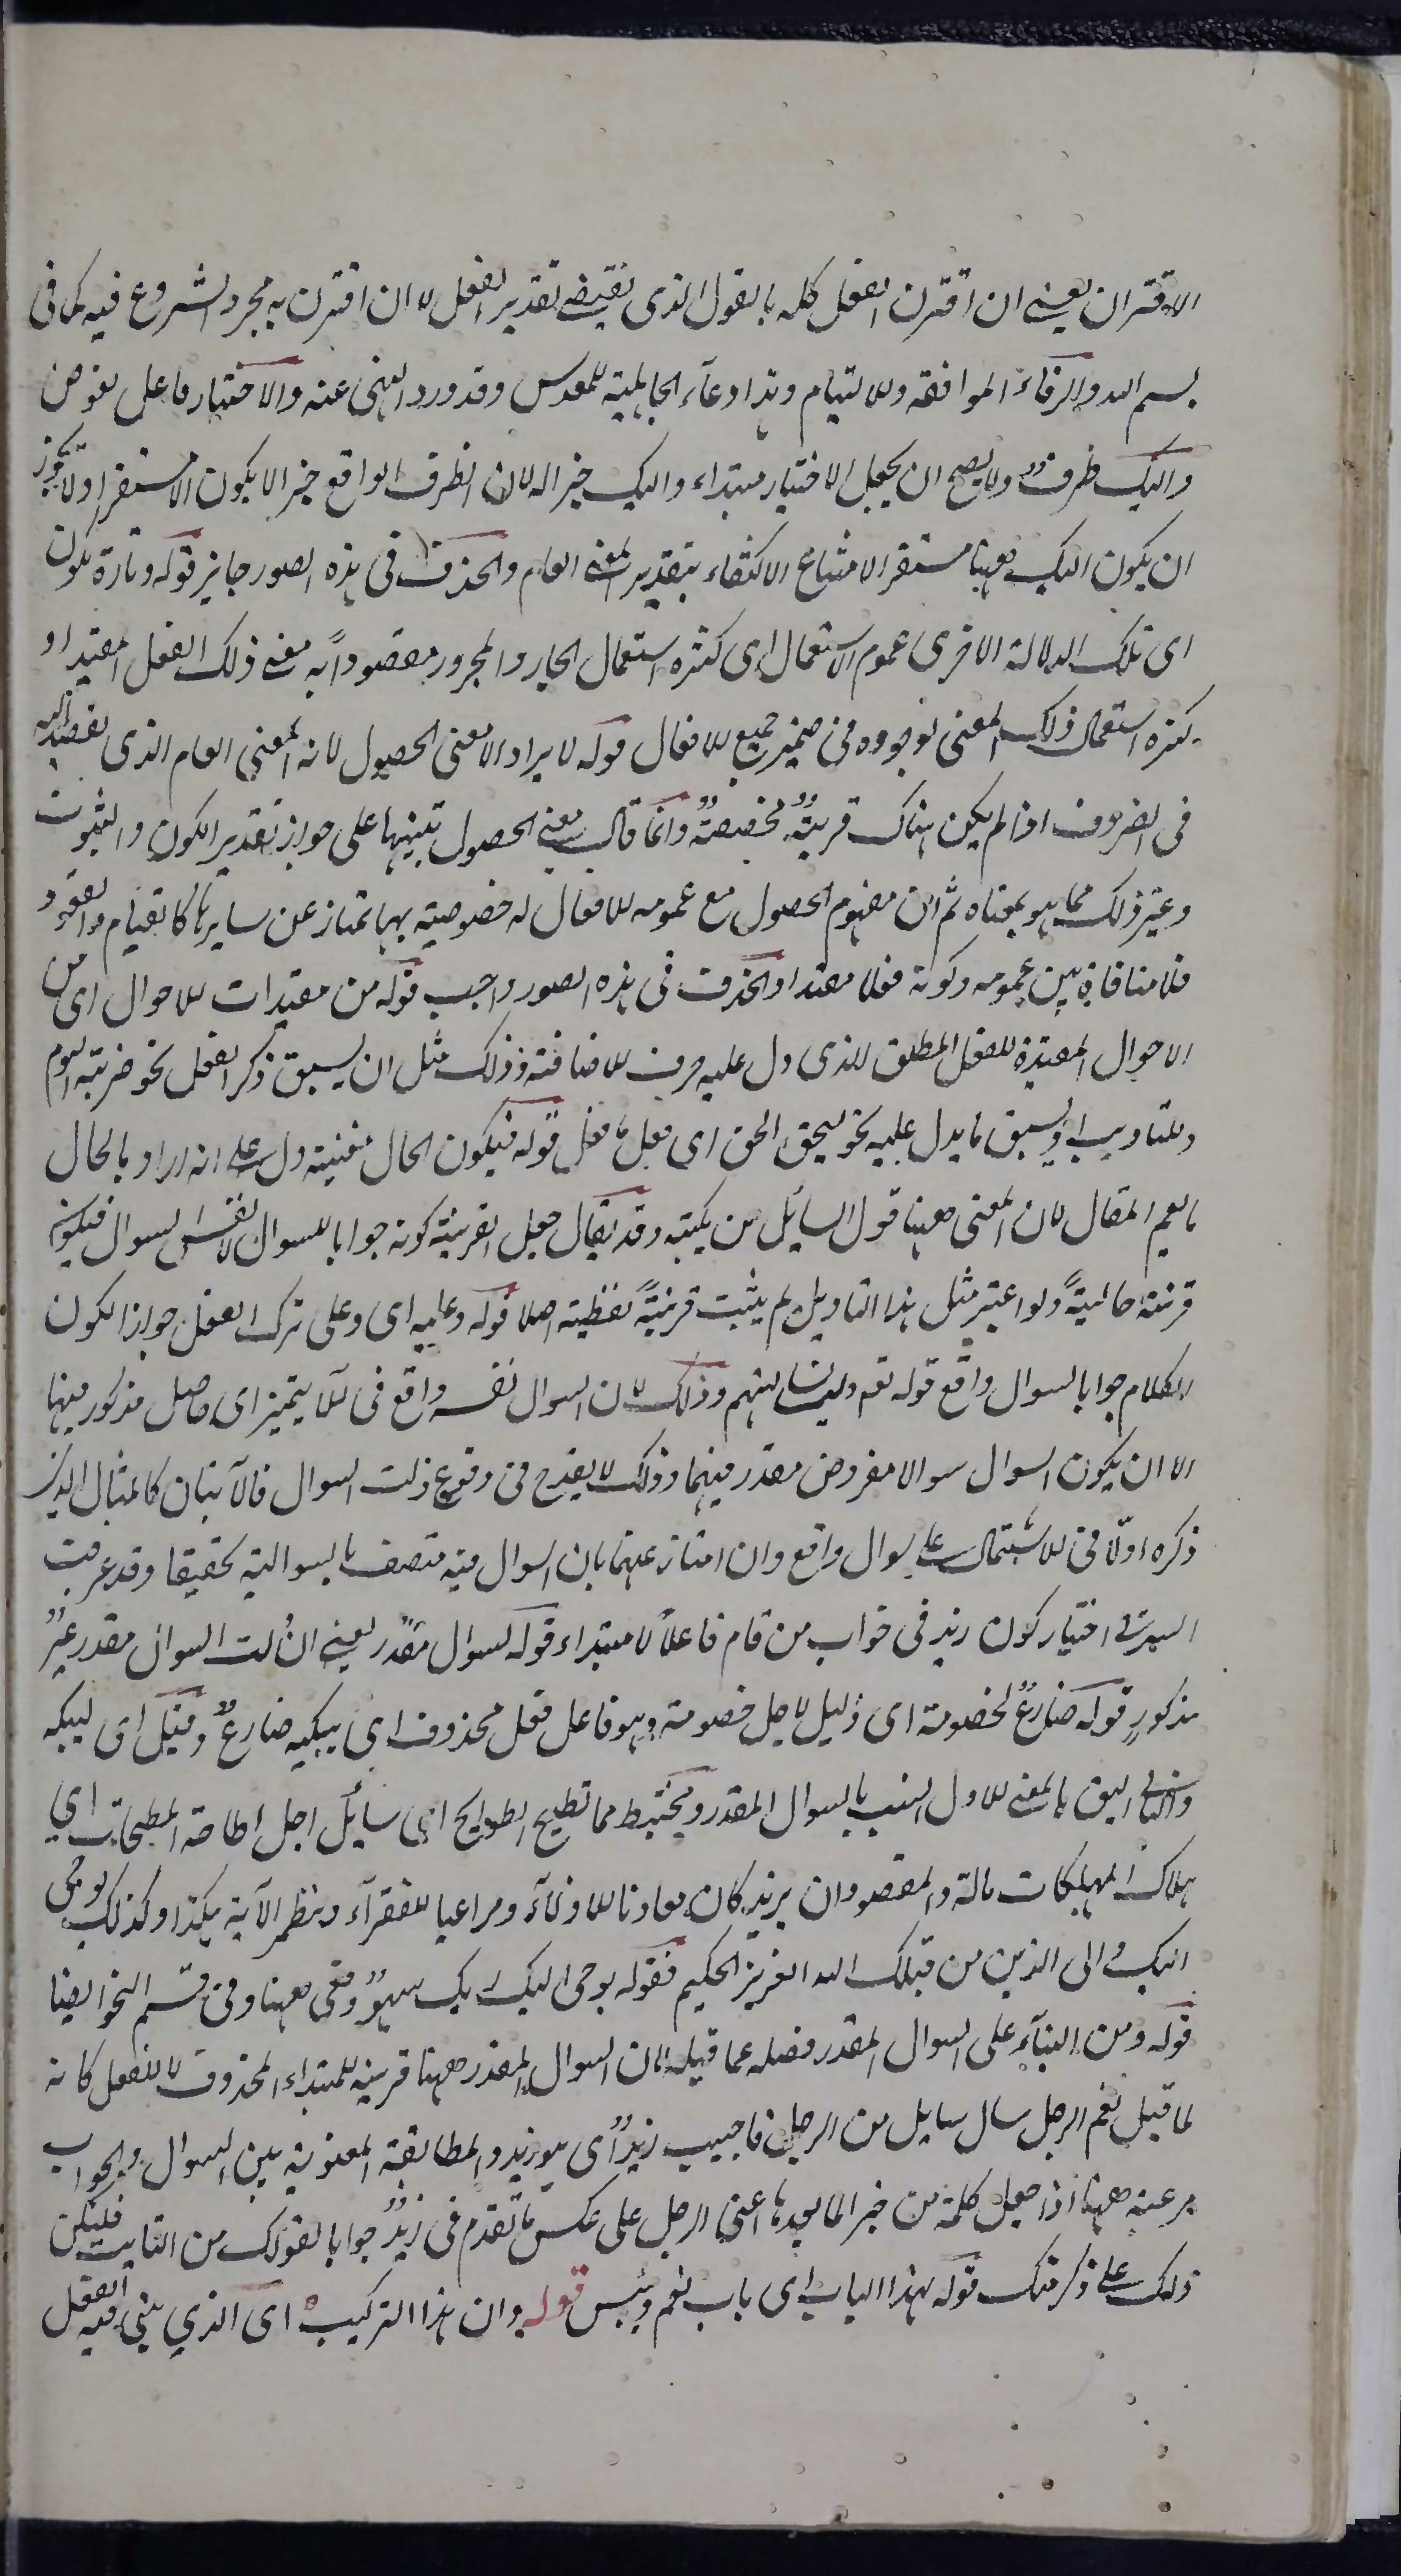 الاقتران يعنى ان اقترن الفعل كله بالقول الذى يقتضى تقدير الفعل لا ان اقترن به مجرد الشروع فيه كما فى
بسم الله والرفاء الموافقة والالتيام وهذا دعآء الجاهلية للمعرس وقد ورد النهى عنه والاختيار فاعل يفوض
واليك ظرف ولا يصح ان يجعل الاختيار مبتداء واليك خبرا له لان الظرف الواقع خبرا لا يكون الا مستقرا ولا يجوز
ان يكون اليك ههنا مستقرا لامتناع الاكتفاء بتقدير المعنى العام والحذف فى هذه الصور جايز قوله وتارة يكون
اى تلك الدلالة الاخرى عموم الاستعمال اى كثرة استعمال الجار والمجرور مقصوداً به معنى ذلك الفعل المقيد او
كثرة استعمال ذلك المعنى لوجوده فى ضمير جميع الافعال قوله لا يراد الا معنى الحصول لانه المعنى العام الذى يقصد اليه
فى الضروف اذا لم يكن هناك قرينةٌ مخصصةٌ وانما قال معنى الحصول تنبيها على جواز تقدير الكون والثبوت
وغير ذلك مما هو بمعناه ثم ان مفهوم الحصول مع عمومه للافعال له خصوصية بها يمتاز عن سايرها كالقيام والقعود
فلا منافاة بين عمومه وكونه فعلا مقيدا والحذف فى هذه الصور واجب قوله من مقيدات الاحوال اى من
الاحوال المقيدة للفعل المطلق الذى دل عليه حرف الاضافة وذلك مثل ان يسبق ذكر الفعل نحو ضربته اليوم
وللتاديب او يسبق ما يدل عليه نحو ليحق الحق اى فعل ما فعل قوله فيكون الحال مغنية دل على انه اراد بالحال
ما يعم المقال لان المعنى ههنا قول السائل من يكتبه وقد يقال جعل القرينة كونه جوابا للسوال لا نفس السوال فيكون
قرينة حاليةً ولو اعتبر مثل هذا التاويل لم يثبت قرينةً لفظية اصلا قوله وعليه اى وعلى ترك الفعل جواز الكون
الكلام جوابا لسوال واقع قوله تعه ولئن سالتهم وذلك لان السوال نفسه واقع فى الآيتين اى حاصل مذكور فيها
الا ان يكون السوال سوالا مفروض مقدر فيهما وذلك لا يقدح فى وقوع ذلك السوال فالآيتان كالمثال الذى
ذكره اولا فى الاشتمال على سوال واقع وان امتاز عنهما بان السوال فيه متصف بالسوالية تحقيقا وقد عرفت
السر فى اختيار كون زيد فى جواب من قام فاعلاً لا مبتداء قوله لسوال مقدر يعنى ان ذلك السوال مقدر غير
مذكورٍ قوله ضارعٌ لخصومة اى ذليل لاجل خصومة وهو فاعل فعل محذوف اى يبكيه ضارعٌ وقيل اى ليبكه
والثانى اليق بالمعنى الاول انسب بالسوال المقدر ومختبط مما تطيح الطوايح اى سائل اجل اطاحة المطيحات اى
هلاك المهلكات ماله والمقصود ان يزيد كان معاونا للاذلاء ومراعيا للفقرآء ونظم الآية هكذا وكذلك يوحى
اليك والى الذين من قبلك الله العزيز الحكيم فقوله يوحى اليك ربك سهوٌ وقع ههنا وفى قسم النحو ايضا
قوله ومن البنآء على السوال المقدر فصله عما قبله لان السوال المقدر ههنا قرينة للمبتداء المحذوف لا للفعل كانه
لما قيل نعم الرجل سال سايل من الرجل فاجيب زيدٌ اى هو زيد والمطابقة المعنوية بين السوال والجواب
مرعية ههنا اذا جعل كلمة من خبرا لما بعدها اعنى الرجل على عكس ما تقدم فى زيدٌ جوابا لقولك من التايب فليكن
ذلك على ذكر منك قوله بهذا الباب اى باب نعم وبئس قوله وان هذا التركيب اى الذى بنى فيه الفعل